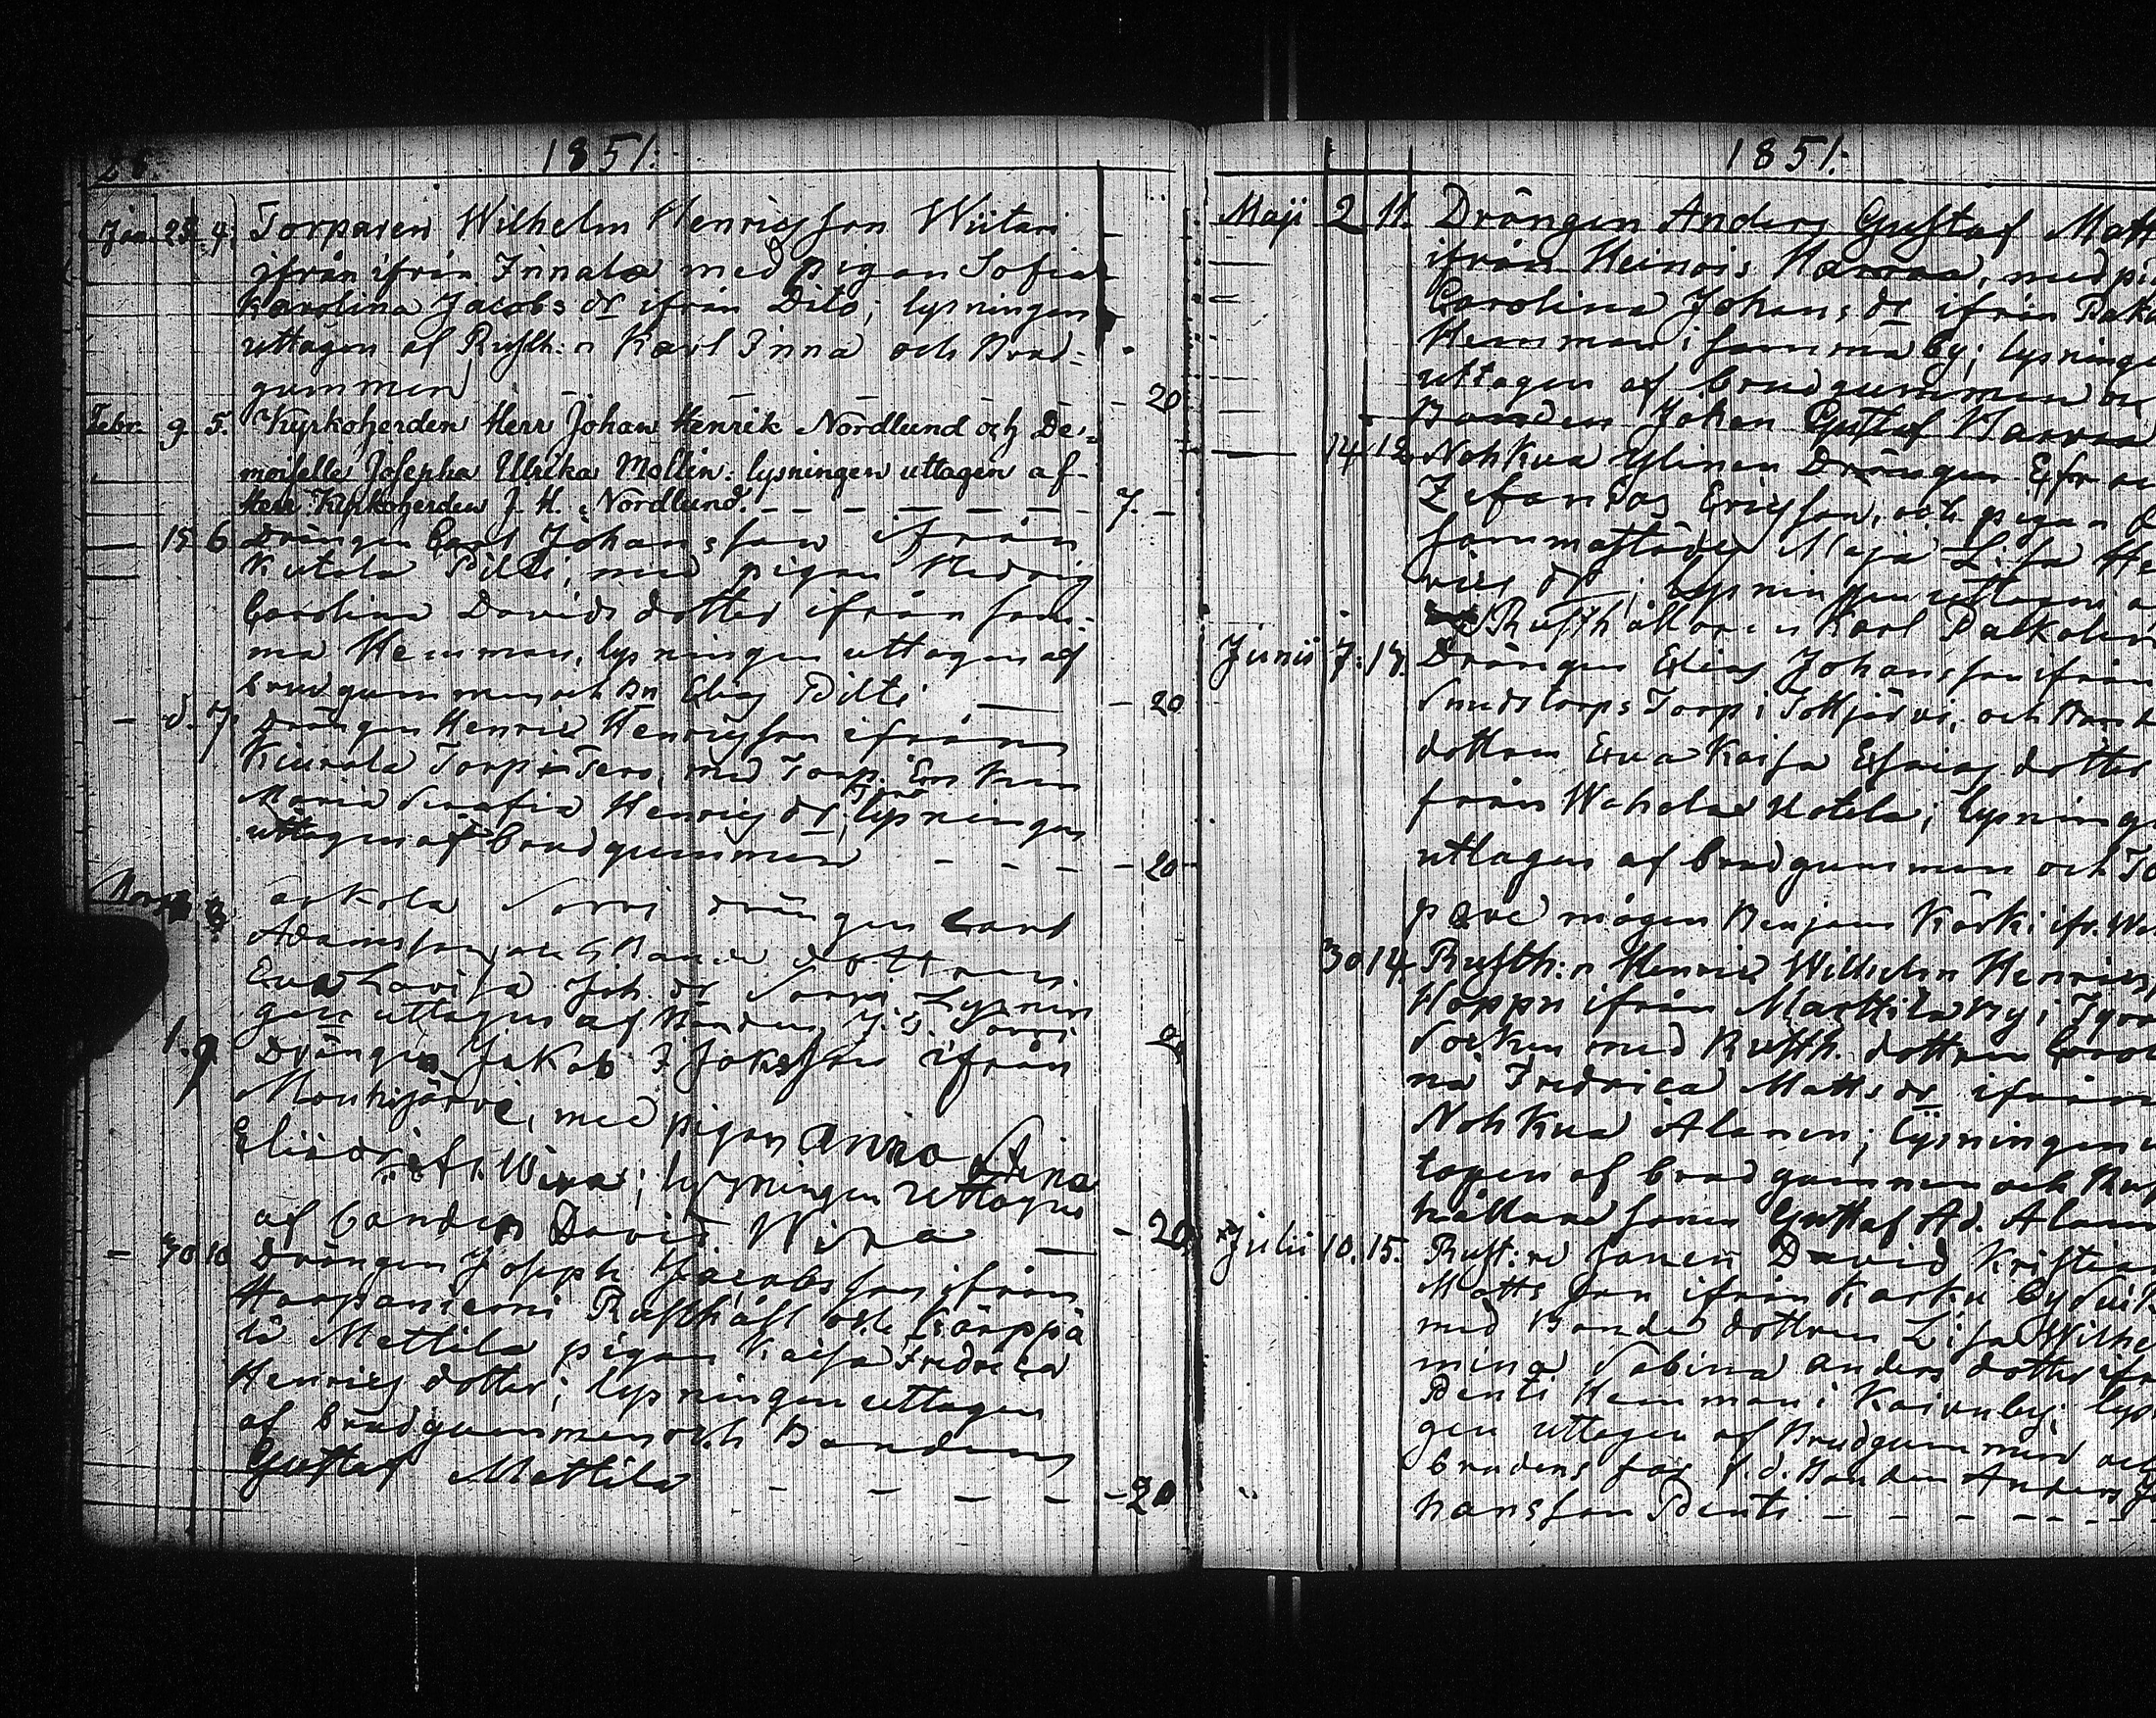 28. 1851.
Jan. 23. 4. Torparen Wilhelm Henricsson Wiitari
ifrån ifrån Innala med pigan Sofia
Karolina Jacobs dr ifrån Dito; lysningen
uttagen af Rusth:n Karl Inna och Brud-
gummen - - - - - 20
Febr. 9 5. Kyrkoherden Herr Johan Henrik Nordlund och De-
moiselle Josepha Ulrika Mollin: lysningen uttagen af
Herr Kyrkoherden J. H. Nordlund. - - - - - 7. -
— 15 6 Drängen Carl Johansson ifrån
Kutala Pilti, med pigan Hedvig
Carolina Davids dotter ifrån sam-
ma Hemman, lysningen uttagen af
brudgummen och Bn Elias Pilti — - 20
- d. 7. Drängen Henric Henricsson ifrån
Kiurala Torp i Tero, med Torp. Enkan
Maria Serafia Henrics dr, lysningen
uttagen af brudgummen - - - - 20 -
Sorri drängen Carl
Adamsson och Bonde dottren
Eva Lovisa Joh. dr Sorri Lysnin
gen uttagen af Bonden J. G. Sorri
1. 9 Drängen Jakob Isaksson ifrån
Mouhijärvi, med pigan Anna Stina
Eliædr ifr. Wina; lysningen uttagen
af bonden David Wina — - 20
- 30 10 Drängen Joseph Jacobsson ifrån
Haapaniemi Rusthåll och Kärppä
lä Mettilä pigan Kaisa Fredrica
Henrics dotter; lysningen uttagen
af brudgummen och Bonden
Gustaf Mettilä - - - - - 20
1851.
Maji 2 11. Drängen Anders Gustaf Matt
ifrån Heinois Harraa, med pi
Carolina Johans dr ifrån Pak
Hemman i samma by; lysninge
uttagen af brudgummen oc
Bonden Johan Gustaf Harraa
14 12. Nohkua Ylinen Drängen Efra
Zefanias Ericsson, och pigan
sammastädes Maja Lisa He
rics dr; lysningen uttagen a
Rusthållaren Karl Palkolin
Junii 7. 13. Drängen Elias Johansson ifrån
Sundstorps Torp i Tottijärvi, och Bon
dottren Eva Kaisa Esaias dotter
från Wahala Uotila; lysninge
uttagen af brudgummen och To
pare mågen Benjam Kärki ifr. Wa
30 14. Rusth:n Henric Wilhelm Henrics
Hoppu ifrån Marttila by i Tyrv
Socken med Rusth. dottren Caro
na Fredrica Matts dr ifrån
Nohkua Alanen; lysningen u
tagen af brudgummen och Rus
hållare sonen Gustaf Ad. Alan
Julii 10. 15. Rusth:re sonen David Kristian
Matts son ifrån Karku by
med Bonde dottren Lisa Wilhel
mina Sabina Anders dotter ifr
Pentti Hemman i Kaivu by; lys
gen uttagen af Brudgummen och
brudens far f.d. Bonden Anders Jo
hansson Pentti - - - - -